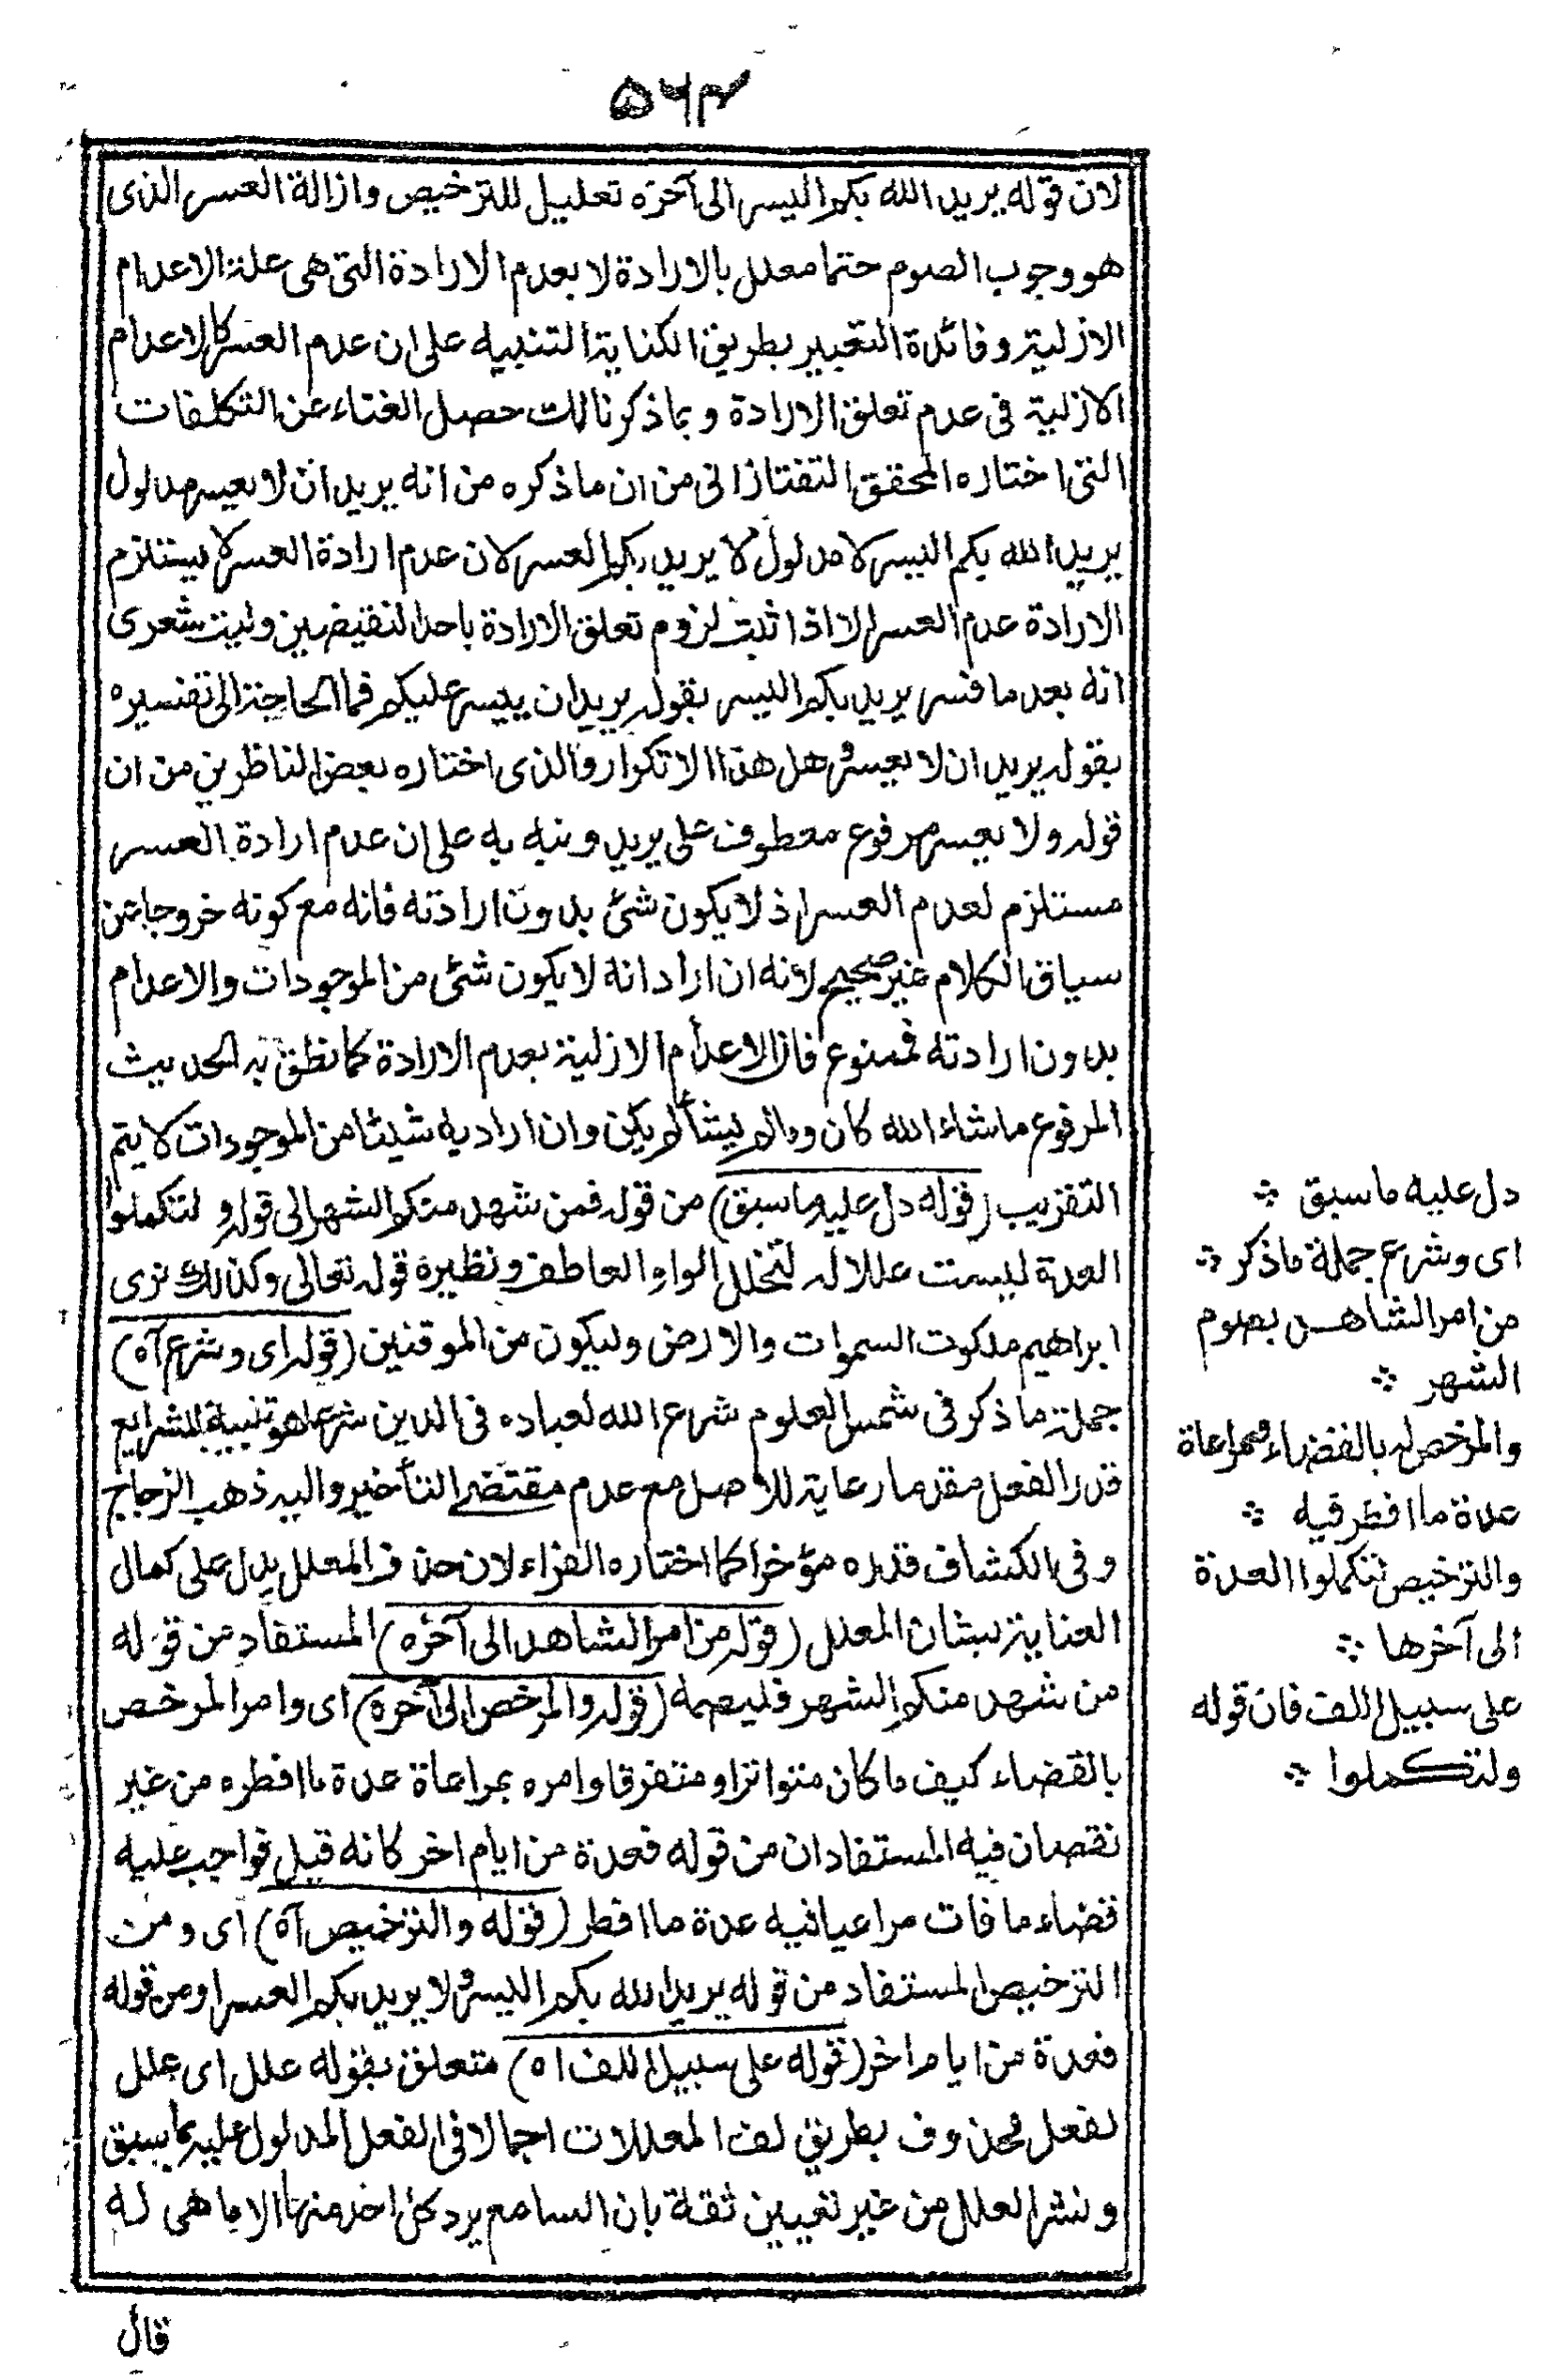 ٥٦٢
لان قوله يريد الله بكم اليسر الى آخره تعليل للترخيص وازالة العسر الذى
هو وجوب الصوم حتما معلل بالارادة لا بعدم الارادة التى هى علة الاعدام
الازلية وفائدة التعبير بطريق الكناية التنبيه على ان عدم العسر كالاعدام
الازلية فى عدم تعلق الارادة وبما ذكرنا لك حصل الغناء عن التكلفات
التى اختاره المحقق التفتازانى من ان ما ذكره من انه يريد ان لا يعسر مدلول
يريد الله بكم اليسر لا مدلول لا يريد بكم العسر لان عدم ارادة العسر لا يستلزم
الارادة عدم العسر الا اذا ثبت لزوم تعلق الارادة باحد النقيضين وليت شعرى
انه بعد ما فسر يريد بكم اليسر بقوله يريد ان ييسر عليكم فما الحاجة الى تفسيره
بقوله يريد ان لا يعسر وهل هذا الا تكرار والذى اختاره بعض الناظرين من ان
قوله ولا يعسر مرفوع معطوف على يريد ونبه به على ان عدم ارادة العسر
مستلزم لعدم العسر اذ لا يكون شئ بدون ارادته فانه مع كونه خروجا عن
سياق الكلام غير صحيح لانه ان اراد انه لا يكون شئ من الموجودات والاعدام
بدون ارادته فممنوع فان الاعدام الازلية بعدم الارادة كما نطق به الحديث
المرفوع ما شاء الله كان وما لم يشأ لم يكن وان اراد به شيئا من الموجودات لا يتم
التقريب (قوله دل عليه ما سبق) من قوله فمن شهد منكم الشهر الى قوله ولتكملوا
العدة ليست عللا له لتخلل الواو العاطف ونظيره قوله تعالى وكذلك نرى
ابراهيم ملكوت السموات والارض وليكون من الموقنين (قوله اى وشرع آه)
جملة ما ذكر فى شمس العلوم شرع الله لعباده فى الدين شرعا هو تبيينه للشرايع
قدر الفعل مقدما رعاية للاصل مع عدم مقتضى التأخير واليه ذهب الزجاج
وفى الكشاف قدره مؤخرا كما اختاره الفراء لان حذف المعلل يدل على كمال
العناية بشان المعلل (قوله من امر الشاهد الى آخره) المستفاد من قوله
من شهد منكم الشهر فليصمه (قوله والمرخص الى آخره) اى وامر المرخص
بالقضاء كيف ما كان متواترا ومتفرقا وامره بمراعاة عدة ما افطره من غير
نقصان فيه المستفادان من قوله فعدة من ايام اخر كانه قيل فواجب عليه
قضاء ما فات مراعيا فيه عدة ما افطر (قوله والترخيص آه) اى ومن
الترخيص المستفاد من قوله يريد الله بكم اليسر ولا يريد بكم العسر او من قوله
فعدة من ايام اخر (قوله على سبيل اللف اه) متعلق بقوله علل اى علل
لفعل محذوف بطريق لف المعللات اجمالا فى الفعل المدلول عليه بما سبق
ونشر العلل من غير تعيين ثقة بان السامع يرد كل احد منها الا ما هى له
قال
دل عليه ما سبق
اى وشرع جملة ما ذكر
من امر الشاهد بصوم
الشهر
والمرخص له بالقضاء ومراعاة
عدة ما افطر فيه
والترخيص لتكملوا العدة
الى آخرها
على سبيل اللف فان قوله
ولتكملوا